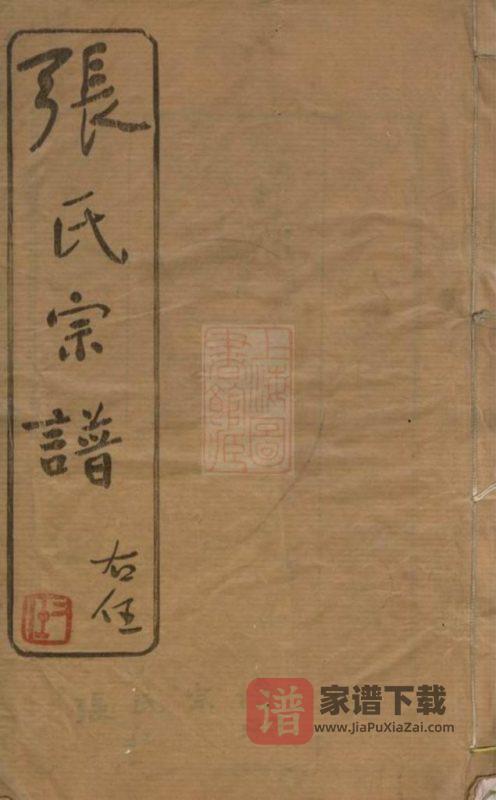 張氏宗譜
右任
上海圖
書館藏
谱
家谱下载
www.JiaPuXiaZai.com